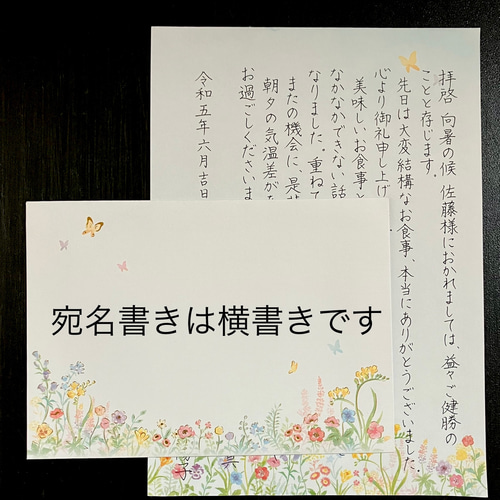 拝啓 向暑の候 佐藤様におかれましては、益々ご健勝の
ことと存じます。
先日は大変結構なお食事、本当にありがとうございました。
心より御礼申し上げ
美味しいお食事と
なかなかできない話
なりました。重ねて
またの機会に、是非
朝夕の気温差が
お過ごしくださいま
令和五年六月吉日
宛名書きは横書きです